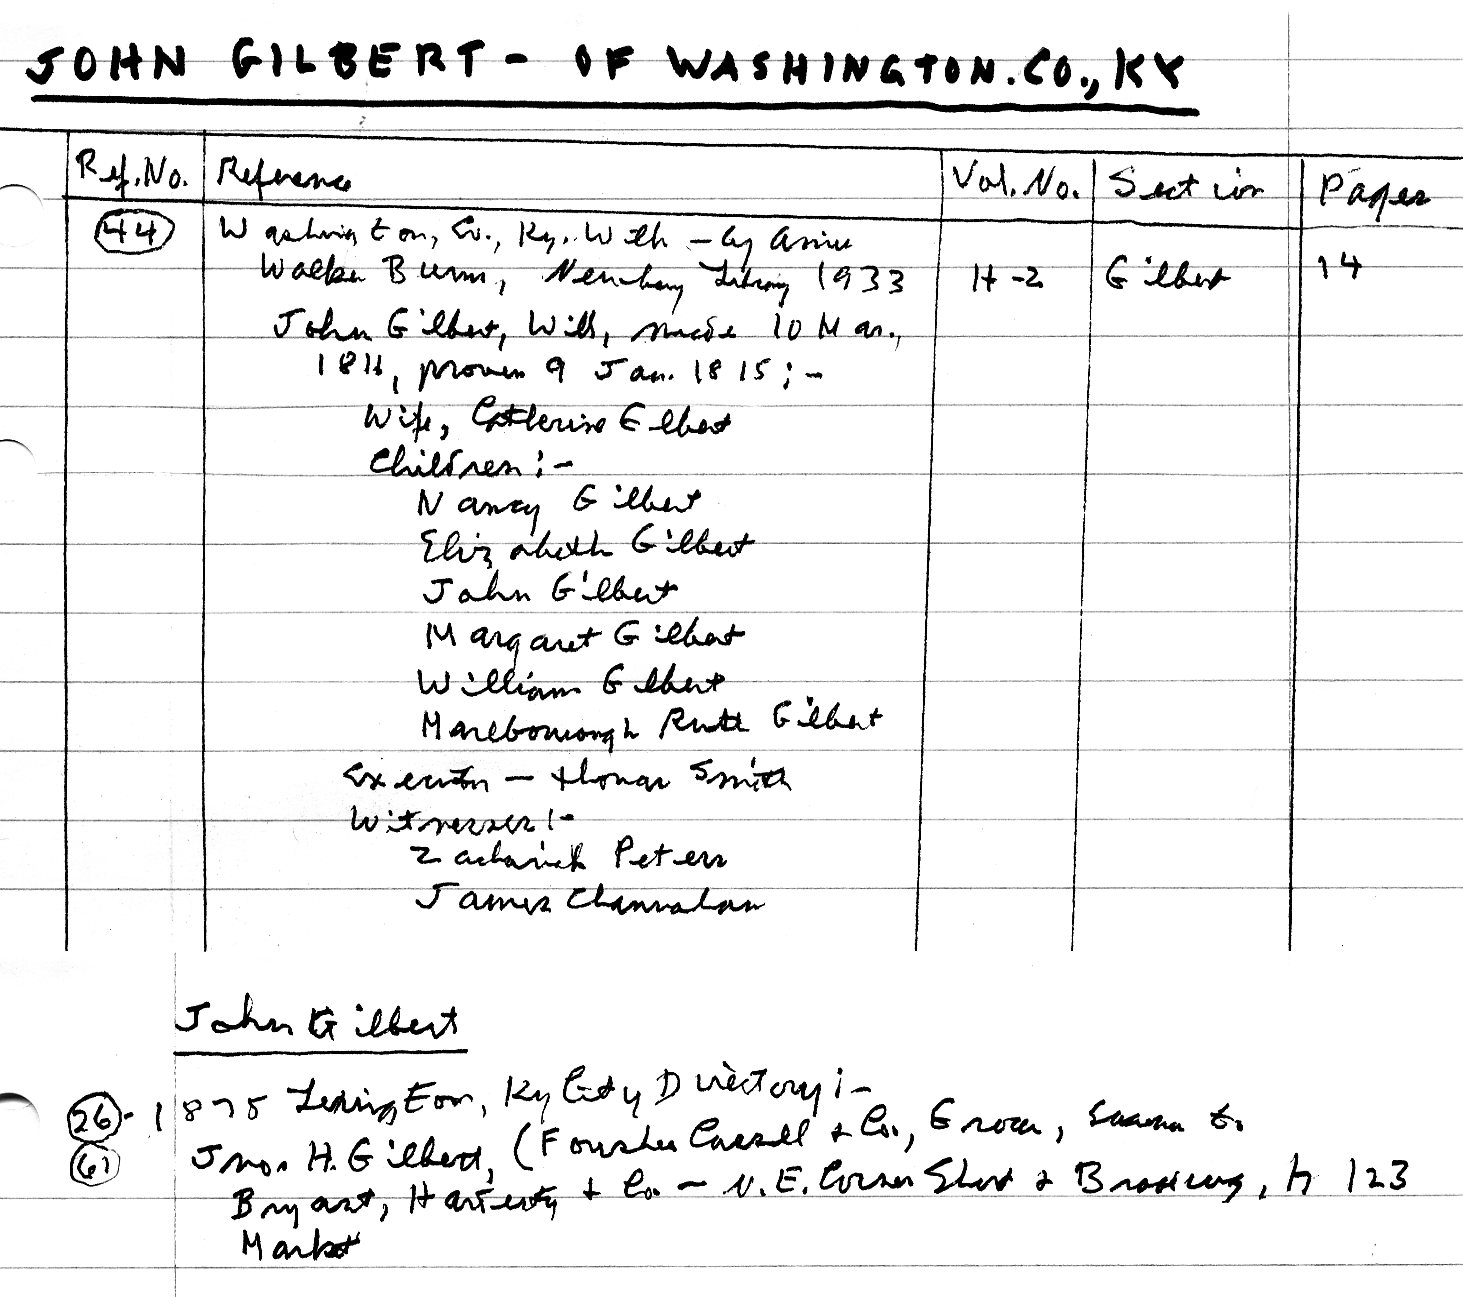 JOHN GILBERT - OF WASHINGTON.CO., KY
Ref. No. Reference Vol. No. Section Pages
44 Washington, Co., Ky. Will - by Annie
Walker Burns, Newberry Library 1933 H-2 Gilbert 14
John Gilbert, Will, made 10 Mar.,
1811, proven 9 Jan. 1815; -
Wife, Catherine Gilbert
Children: -
Nancy Gilbert
Elizabeth Gilbert
John Gilbert
Margaret Gilbert
William Gilbert
Marlborough Ruth Gilbert
Executor - Thomas Smith
Witnesses: -
Zachariah Peters
James
John Gilbert
26 - 1875 Lexington, Ky City Directory: -
61 Jno. H. Gilbert, ( & Co., Grocers, to
Bryant, & Co. - N.E. Corner Short & Broadway, h 123
Market